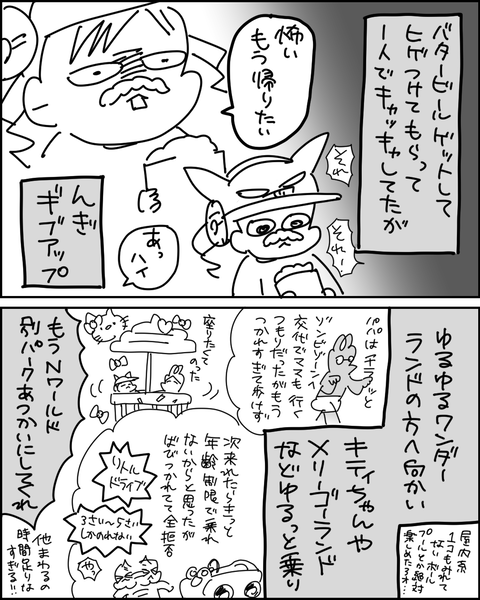 バタービールゲットして
ヒゲつけてもらって
一人でキャッキャしてたが
怖い
もう帰りたい
それ
それー
あっ
ハイ
んぎ
ギブアップ
ゆるゆるワンダー
ランドの方へ向かい
パパはチラッと
ゾンビゾーン行
交代でママも行く
つもりだったがもう
つかれすぎて歩けず
キティちゃんや
メリーゴーランド
などゆるっと乗り
屋内系
1コもみれて
ないボール
プールとか絶対
楽しめたろオ…
座りたくて
のった
次来れたらきっと
年齢制限で乗れ
ないからと思ったが
ばびつかれてて全拒否
リトル
ドライブ
3さい〜5さい
しかのれない
や
もうNワールド
別パークあつかいにしてくれ
他まわるの
時間足りな
すぎる!!